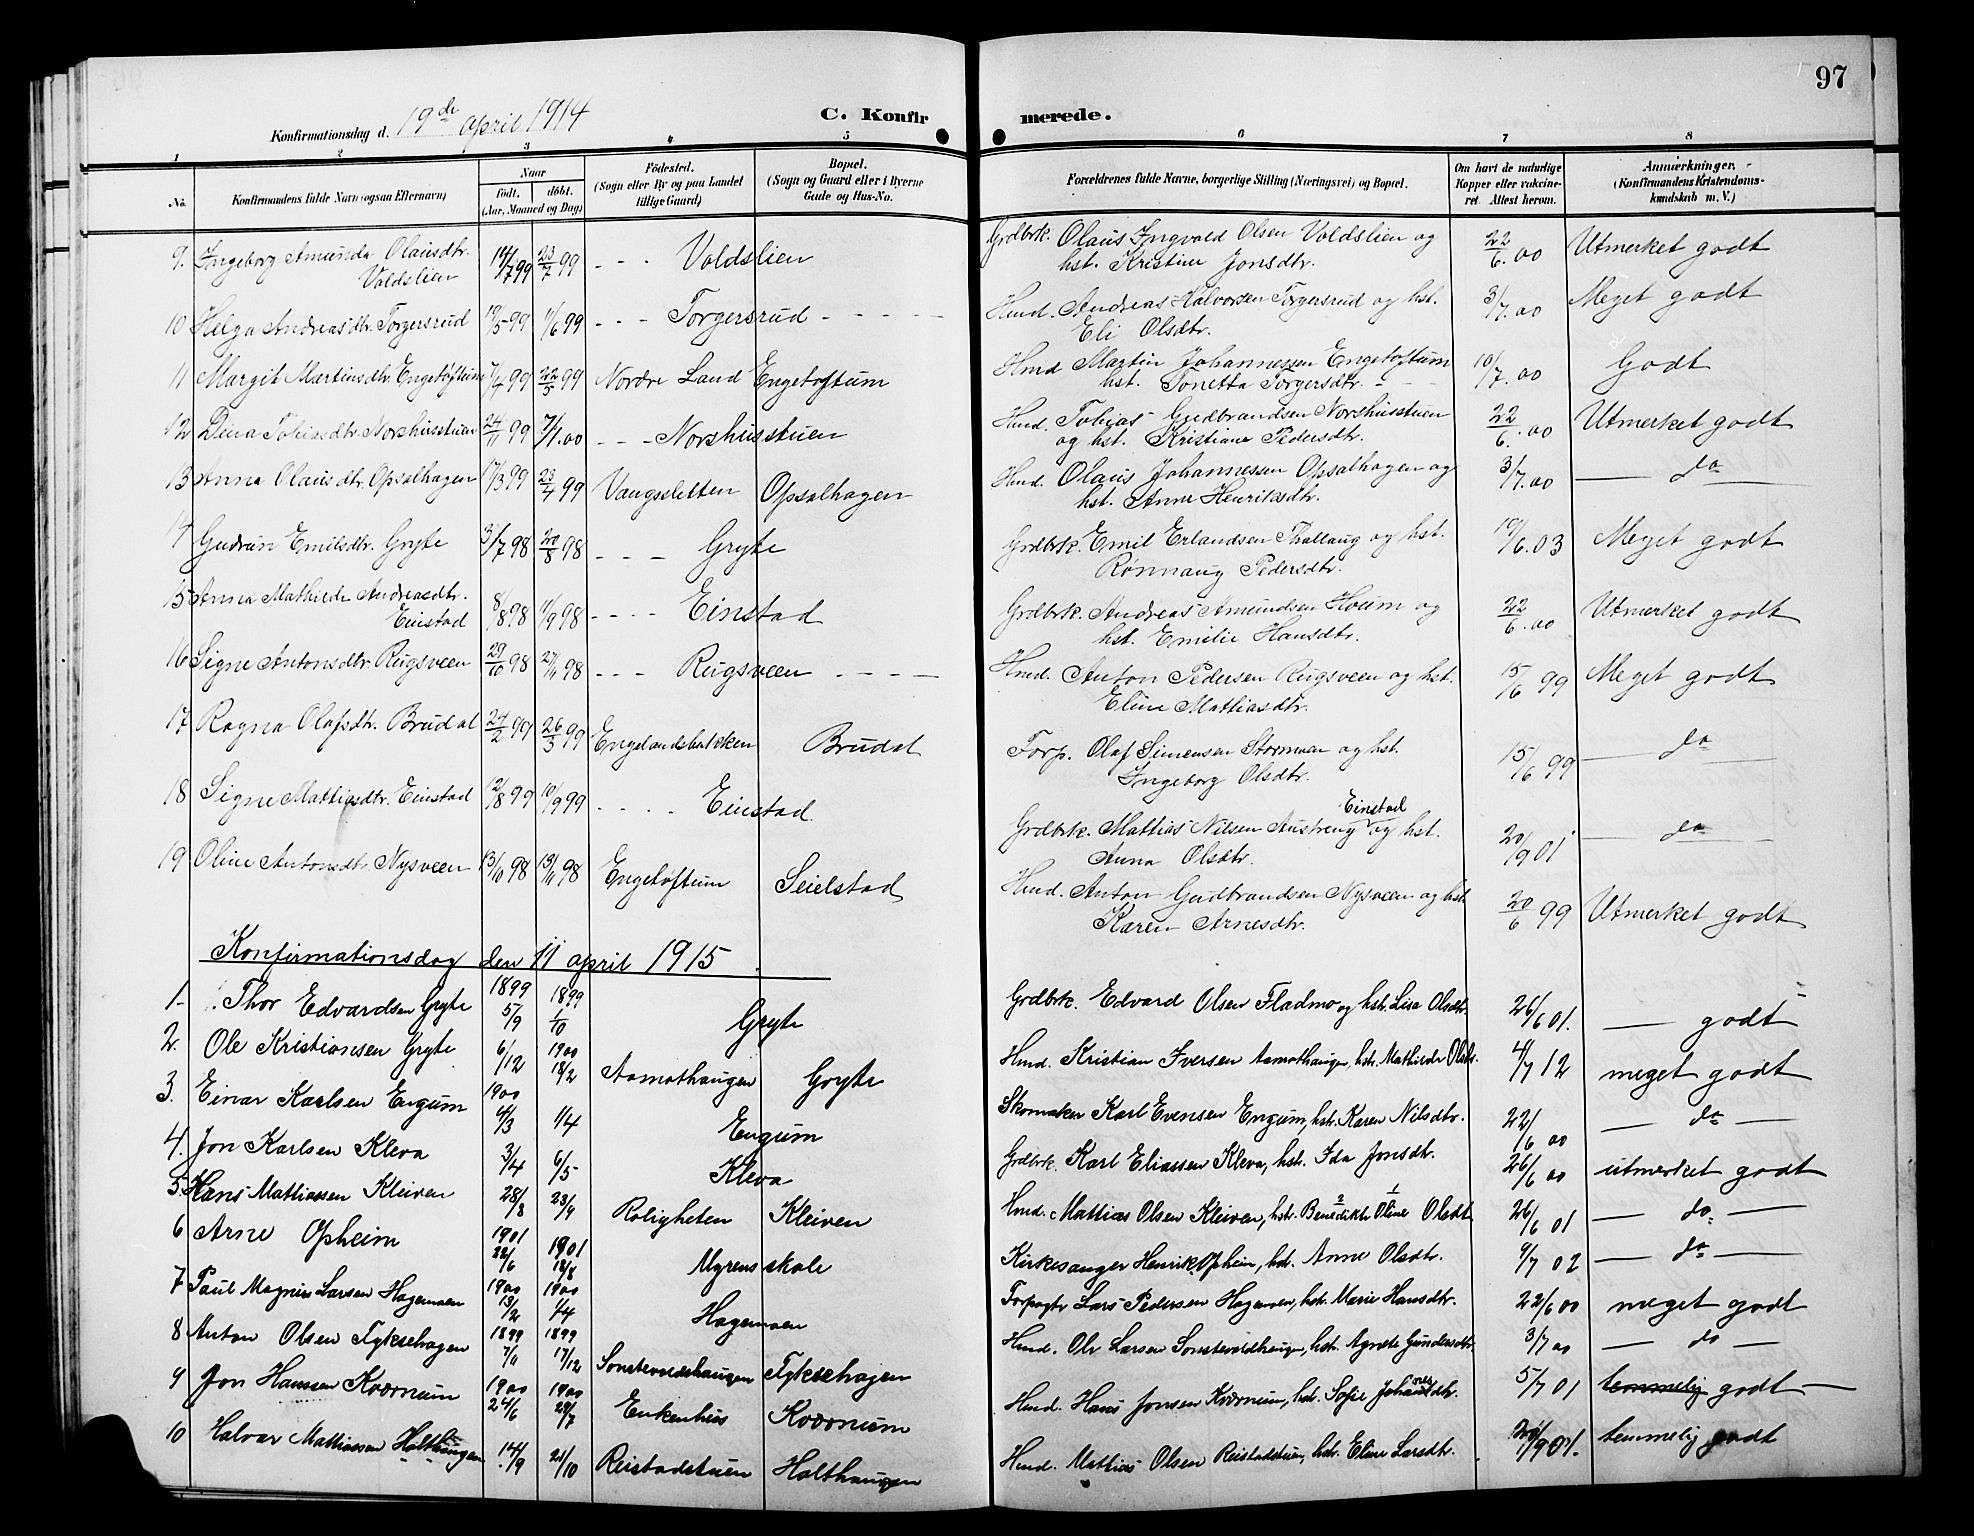 97
Konfirmationsdag d. 19de april 1914 C. Konfirmerede.
1 2 3 4 5 6 7 8
No. Konfirmandens fulde Navn (ogsaa Efternavn) Naar født. døbt. (Aar, Maaned og Dag) Fødested. (Sogn eller By og paa Landet tillige Gaard) Bopæl. (Sogn og Gaard eller i Byerne Gade og Hus-No. Forældrenes fulde Navne, borgerlige Stilling (Næringsvei) og Bopæl. Om havt de naturlige Kopper eller vakcineret. Attest herom. Anmærkninger. (Konfirmandens Kristendomskundskab m. V.)
9. Ingeborg Amunda Olausdtr. 14/7 99 23/7 99 - - - Voldslien Grdbrk. Olaus Ingvald Olsen Voldslien og 22/6.00 Utmerket godt
Voldslien hst. Kristine Jonsdtr.
10 Helga Andreasdtr. Torgersrud 19/5 99 11/6 99 - - - Torgersrud - - - - - Hmd. Andreas Halvorsen Torgersrud og hst. 3/7.00 Meget godt
Eli Olsdtr.
11 Margit Martinsdtr. Engetoftum 7/4 99 22/5 99 Nordre Land Engetoftum Hmd Martin Johannessen Engetoftum 10/7.00 Godt
hst. Tonetta Torgersdtr. - - -
12 Dina Tobiasdtr. Norshusstuen 24/11 99 7/1.00 - - - Norshusstuen Hmd. Tobias Gudbrandsen Norshusstuen 22/6.00 Utmerket godt
og hst. Kristiane Pedersdtr.
13 Anna Olausdtr. Opsalhagen 17/3 99 23/4 99 Vangsletten Opsalhagen Hmd. Olaus Johannessen Opsalhagen og 3/7.00 — do —
hst. Anne Henriksdtr.
14 Gudrun Emilsdtr. Gryte 3/7 98 20/8 98 - - - Gryte Grdbrk. Emil Erlandsen Thallaug og hst. 19/6.03 Meget godt
Rønnaug Pedersdtr.
15 Anna Mathilde Andreasdtr. 8/8 98 11/9 98 - - - - Einstad Grdbrk. Andreas Amundsen Hoium og 22/6.00 Utmerket godt
Einstad hst. Emilie Hansdtr.
16 Signe Antonsdtr. Rugsveen 29/10 98 27/11 98 - - - Rugsveen - - - - Hmd. Anton Pedersen Rugsveen og hst. 15/6 99 Meget godt
Eline Mattiasdtr.
17 Ragna Olafsdtr. Brudal 24/2 99 26/3 99 Engelandsbakken Brudal Forp. Olaf Simensen Stormoen og hst. 15/6 99 — do —
Ingeborg Olsdtr.
18 Signe Mattiasdtr. Einstad 12/8 99 10/9 99 - - - - Einstad Grdbrk. Mattias Nilsen Austreng Einstad og hst. 20/9 01 — do —
Anna Olsdtr.
19 Oline Antonsdtr. Nysveen 13/10 98 13/11 98 Engetoftum Seielstad Hmd. Anton Gudbrandsen Nysveen og hst. 20/6 99 Utmerket godt
Karen Arnesdtr.
Konfirmationsdag den 11 april 1915
1. Thor Edvardsen Gryte 1899 5/9 1899 1/10 Gryte Grdbrk. Edvard Olsen Fladmo og hst. Lisa Olsdtr. 26/6 01. — godt
2. Ole Kristiansen Gryte 6/12 1900 18/2 Aamothaugen Gryte Hmd. Kristian Iversen Aamothaugen, hst. Mathilde Olsdt. 4/7 12 meget godt
3. Einar Karlsen Engum 1900 4/3 1/4 Engum Skomaker Karl Evensen Engum, hst. Karen Nilsdtr. 22/6 00 — do —
4. Jon Karlsen Kleva 3/4 6/5 Kleva Grdbrk. Karl Eliassen Kleva, hst. Ida Jonsdtr. 26/6 00 utmerket godt
5. Hans Mattiassen Kleiven 28/8 23/9 Roligheten Kleiven Hmd. Mattias Olsen Kleiven, hst. Benedikte Oline Olsdt 26/6 01 — do —
6 Arne Opheim 1901 22/6 1901 18/8 Myrens skole Kirkesanger Henrik Opheim, hst. Anne Olsdtr. 9/7 02 — do —
7 Paul Magnus Larsen Hagemoen 1900 13/2 1900 1/4 Hagemoen Forpagtr Lars Pedersen Hagemoen, hst. Marie Hansdtr. 22/6 00 meget godt
8 Anton Olsen Fyksehagen 1899 7/11 1899 17/12 Sonstevoldshaugen Fyksehagen Hmd. Ole Larsen Sonstevoldhaugen, hst. Agnete Gundersdtr. 3/7 00 — do —
9 Jon Hansen Kvornum 1900 24/6 1900 29/7 Enkenhus Kvornum Hmd. Hans Jonsen Kvornum, hst. Sofie Johannesdtr. 5/7 01 temmelig godt —
10 Halvar Mattiassen Holthaugen 14/9 21/10 Reistadstuen Holthaugen Hmd. Mattias Olsen Reistadstuen, hst. Eline Larsdtr. 20/9 01. temmelig godt